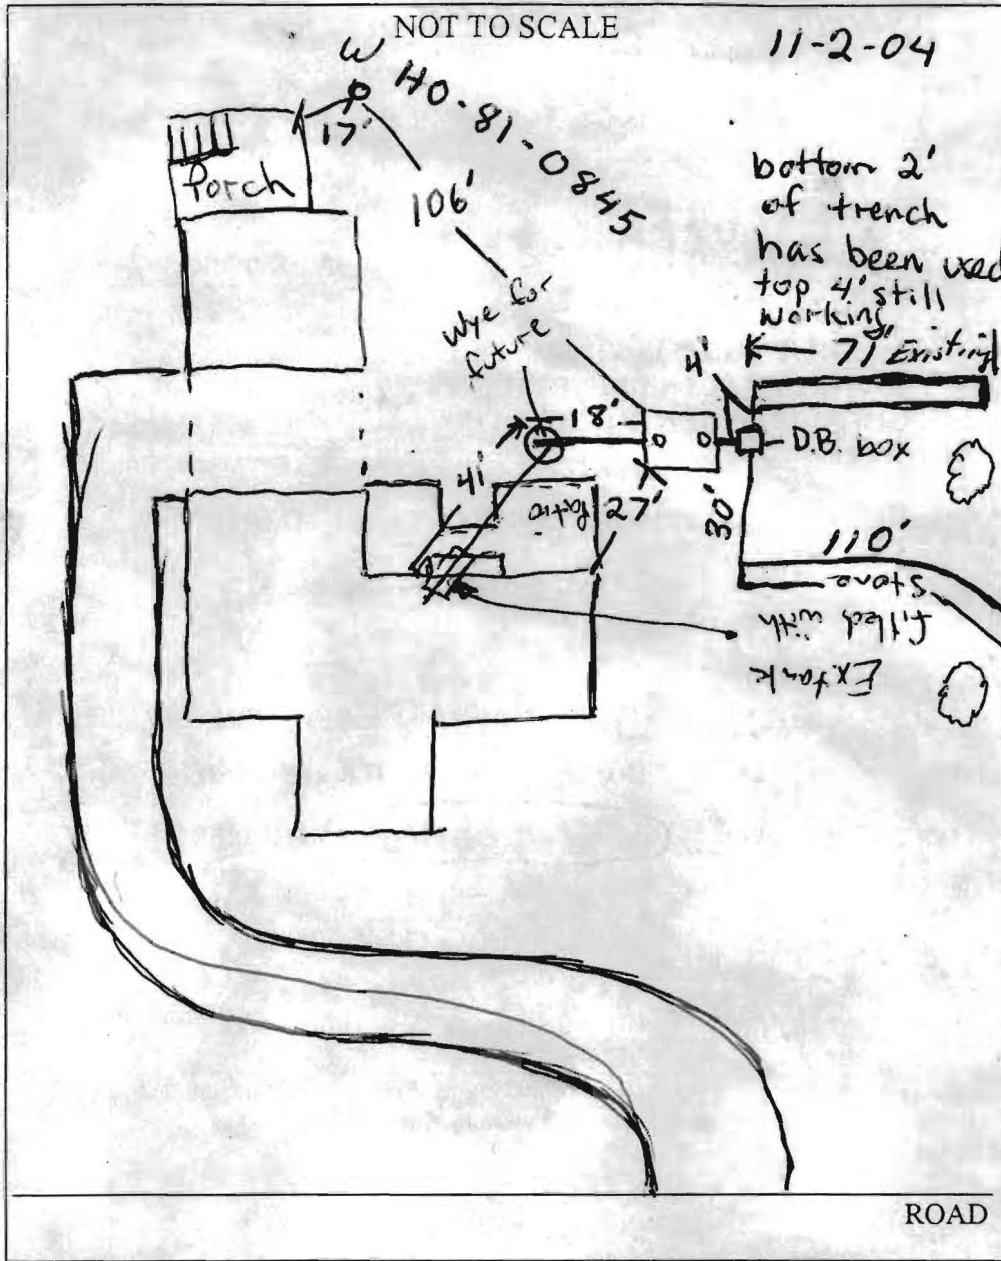 NOT TO SCALE
11-2-04
W
HO-81-0845
17'
Porch
106'
bottom 2'
of trench
has been used
top 4' still
working
71' Existing
Wye for
future
4'
18'
D.B. box
41'
Patio
27'
30'
110'
Ex.tank
filled with
stone
ROAD